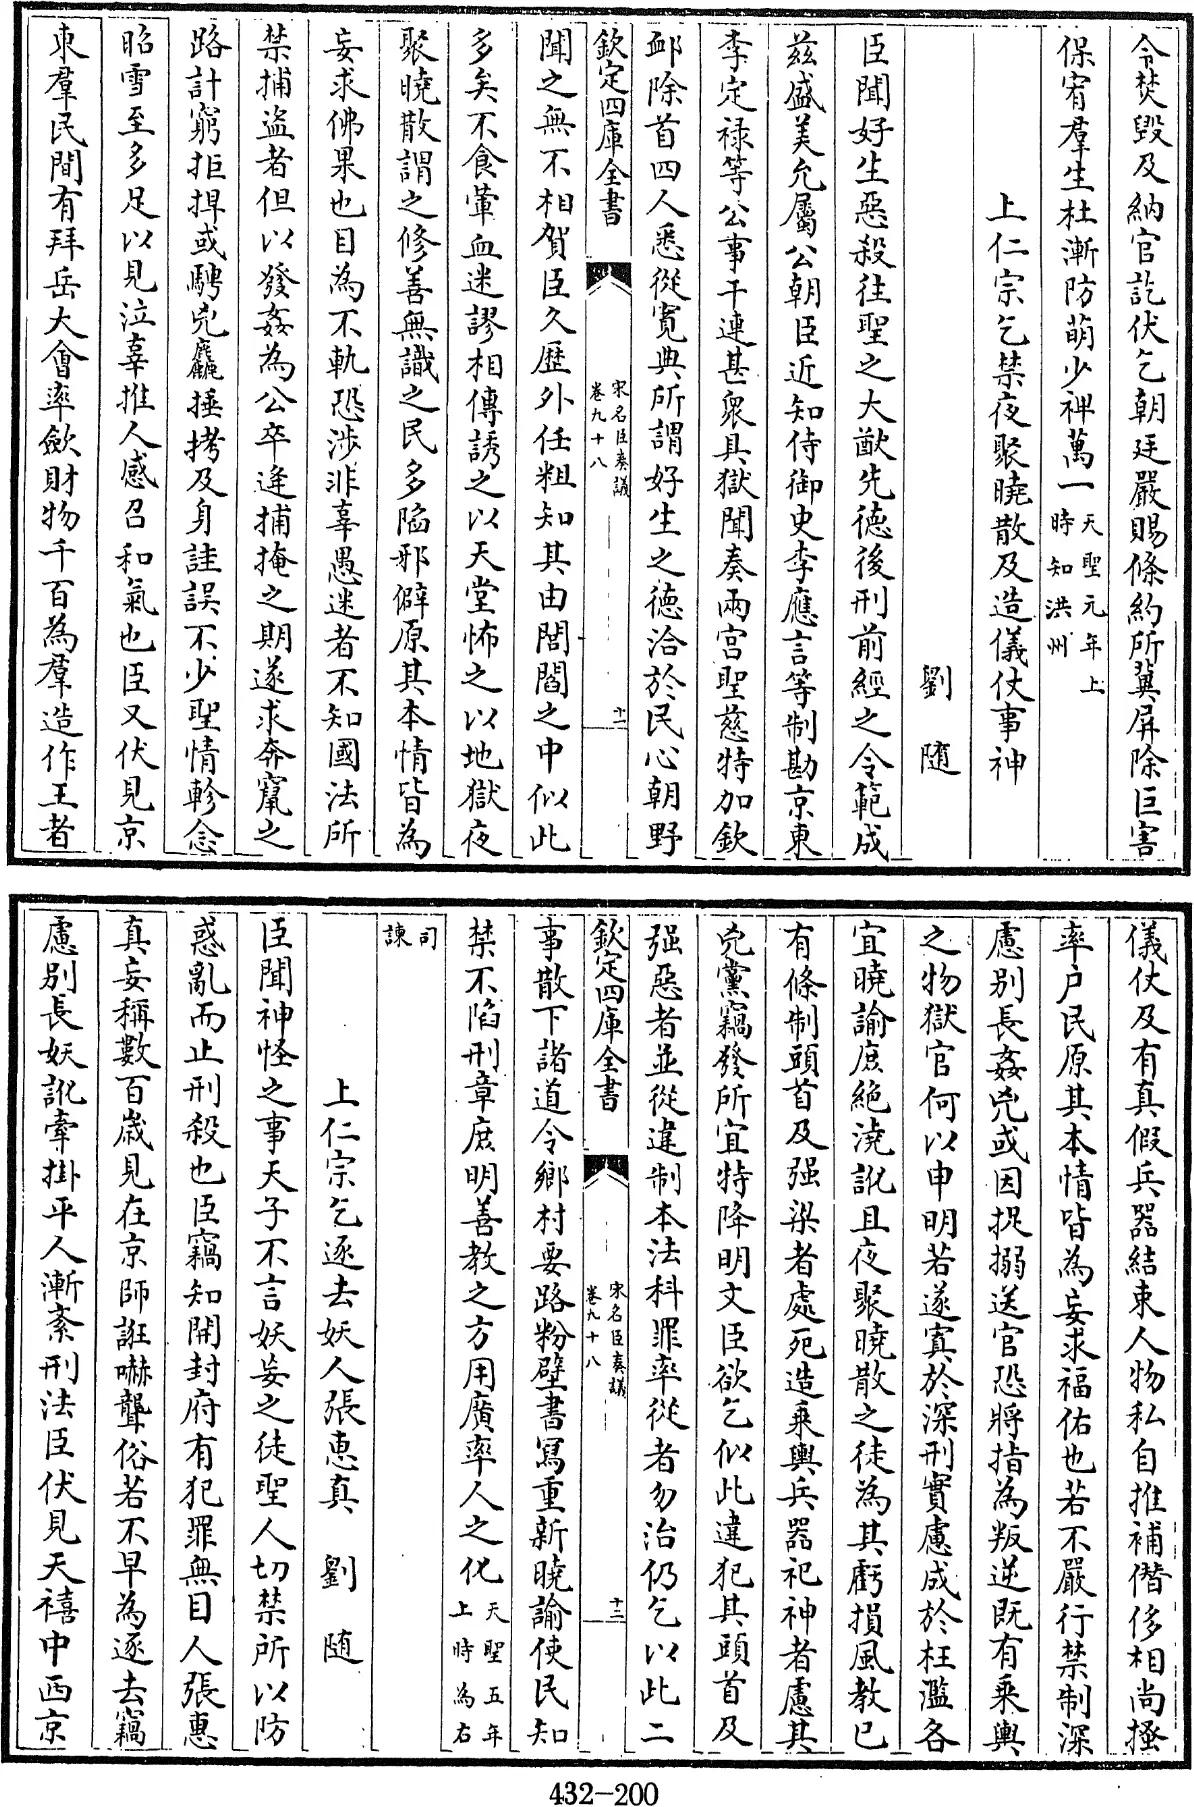 令焚毀及納官訖伏乞朝廷嚴賜條約所冀屏除巨害
保宥羣生杜漸防萌少裨萬一天聖元年上時知洪州
上仁宗乞禁夜聚曉散及造儀仗事神
劉隨
臣聞好生惡殺往聖之大猷先德後刑前經之令範成
茲盛美允屬公朝臣近知侍御史李應言等制勘京東
李定祿等公事干連甚衆具獄聞奏兩宮聖慈特加欽
卹除首四人悉從寬典所謂好生之德洽於民心朝野
欽定四庫全書
宋名臣奏議
卷九十八
十一
聞之無不相賀臣久歷外任粗知其由閭閻之中似此
多矣不食葷血迷謬相傳誘之以天堂怖之以地獄夜
聚曉散謂之修善無識之民多陷邪僻原其本情皆為
妄求佛果也目為不軌恐涉非辜愚迷者不知國法所
禁捕盜者但以發姦為公卒逢捕掩之期遂求奔竄之
路計窮拒捍或騁兇麤捶拷及身詿誤不少聖情軫念
昭雪至多足以見泣辜推人感召和氣也臣又伏見京
東羣民間有拜岳大會率斂財物千百為羣造作王者
儀仗及有真假兵器結束人物私自推補僭侈相尚搔
率户民原其本情皆為妄求福佑也若不嚴行禁制深
慮别長姦兇或因捉搦送官恐將指為叛逆既有乘輿
之物獄官何以申明若遂寘於深刑實慮成於枉濫各
宜曉諭庶絶澆訛且夜聚曉散之徒為其虧損風教已
有條制頭首及强梁者處死造乘輿兵器祀神者慮其
兇黨竊發所宜特降明文臣欲乞似此違犯其頭首及
强惡者並從違制本法科罪率從者勿治仍乞以此二
欽定四庫全書
宋名臣奏議
卷九十八
十二
事散下諸道令鄉村要路粉壁書寫重新曉諭使民知
禁不陷刑章庶明善教之方用廣率人之化天聖五年上時為右
司諫
上仁宗乞逐去妖人張惠真 劉隨
臣聞神怪之事天子不言妖妄之徒聖人切禁所以防
惑亂而止刑殺也臣竊知開封府有犯罪無目人張惠
真妄稱數百歲見在京師誑嚇聾俗若不早為逐去竊
慮别長妖訛牽掛平人漸紊刑法臣伏見天禧中西京
432-200